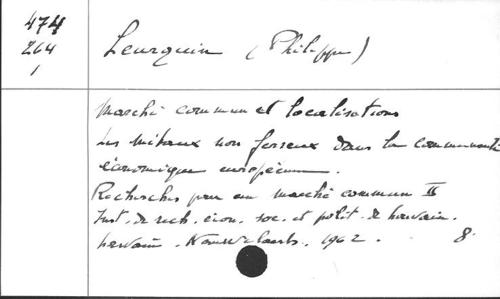 474
264
1
Leurquin (Philippe)
Marché commun et localisations
Les métaux non ferreux dans la communauté
économique européenne.
Recherches pour un marché commun III
Inst. de rech. écon. soc. et polit. de Louvain.
Louvain. Nauwelaerts. 1962. 8.